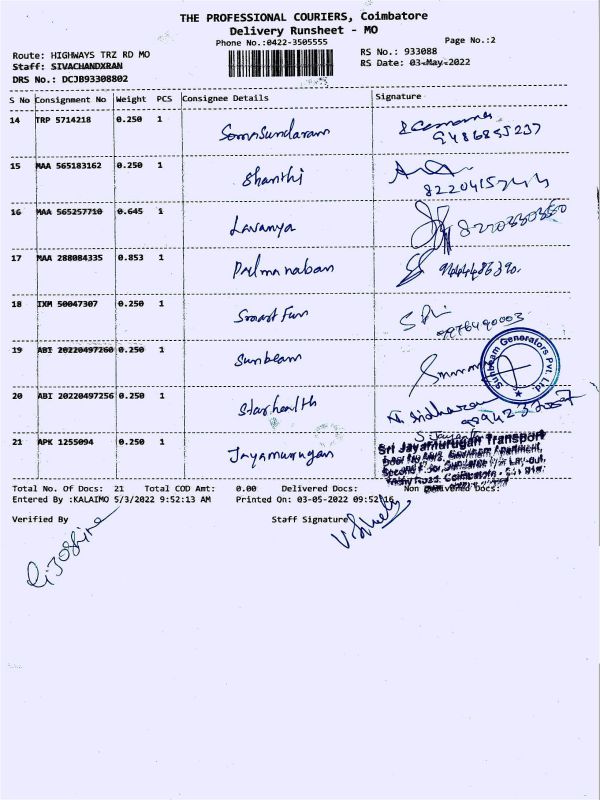 THE PROFESSIONAL COURIERS, Coimbatore
Delivery Runsheet - MO
Phone No.:0422-3505555 Page No.:2
Route: HIGHWAYS TRZ RD MO RS No.: 933088
Staff: SIVACHANDXRAN RS Date: 03-May-2022
DRS No.: DCJB93308802
S No Consignment No Weight PCS Consignee Details Signature
14 TRP 5714218 0.250 1 Somsundaram 9486855237
15 MAA 565183162 0.250 1 Shanthi
16 MAA 565257710 0.645 1 Lavanya 8220330350
17 MAA 288084335 0.853 1
18 IXM 50047307 0.250 1 Smart Fun 9976490003
19 ABI 20220497260 0.250 1 Sunbeam
Sunbeam Generators Pvt. Ltd.
20 ABI 20220497256 0.250 1 Starhealth N. Sidharan
21 APK 1255094 0.250 1 Jayamurugan
Sri Jayamurugan Transport
Total No. Of Docs: 21 Total COD Amt: 0.00 Delivered Docs: Non Delivered Docs:
Entered By :KALAIMO 5/3/2022 9:52:13 AM Printed On: 03-05-2022 09:52:16
Verified By Staff Signature